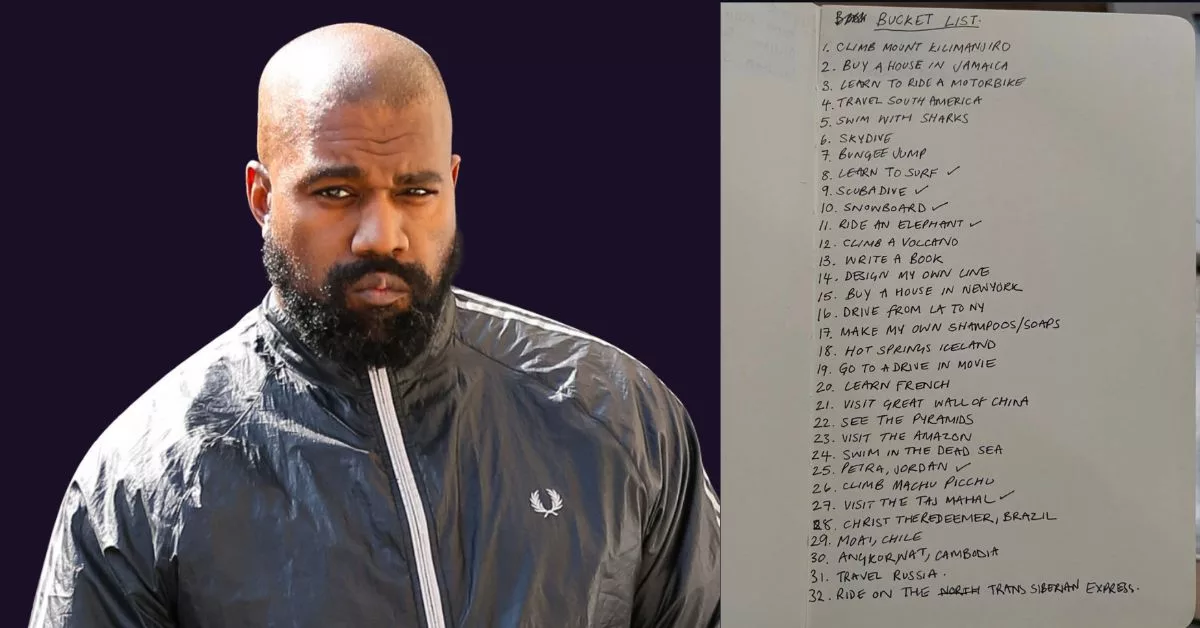 BUCKET LIST.
1. CLIMB MOUNT KILIMANJIRO
2. BUY A HOUSE IN JAMAICA
3. LEARN TO RIDE A MOTORBIKE
4. TRAVEL SOUTH AMERICA
5. SWIM WITH SHARKS
6. SKYDIVE
7. BUNGEE JUMP
8. LEARN TO SURF ✓
9. SCUBADIVE ✓
10. SNOWBOARD ✓
11. RIDE AN ELEPHANT ✓
12. CLIMB A VOLCANO
13. WRITE A BOOK
14. DESIGN MY OWN LINE
15. BUY A HOUSE IN NEWYORK
16. DRIVE FROM LA TO NY
17. MAKE MY OWN SHAMPOOS/SOAPS
18. HOT SPRINGS ICELAND
19. GO TO A DRIVE IN MOVIE
20. LEARN FRENCH
21. VISIT GREAT WALL OF CHINA
22. SEE THE PYRAMIDS
23. VISIT THE AMAZON
24. SWIM IN THE DEAD SEA
25. PETRA, JORDAN ✓
26. CLIMB MACHU PICCHU
27. VISIT THE TAJ MAHAL ✓
28. CHRIST THEREDEEMER, BRAZIL
29. MOAI, CHILE
30. ANGKORWAT, CAMBODIA
31. TRAVEL RUSSIA.
32. RIDE ON THE NORTH TRANS SIBERIAN EXPRESS.